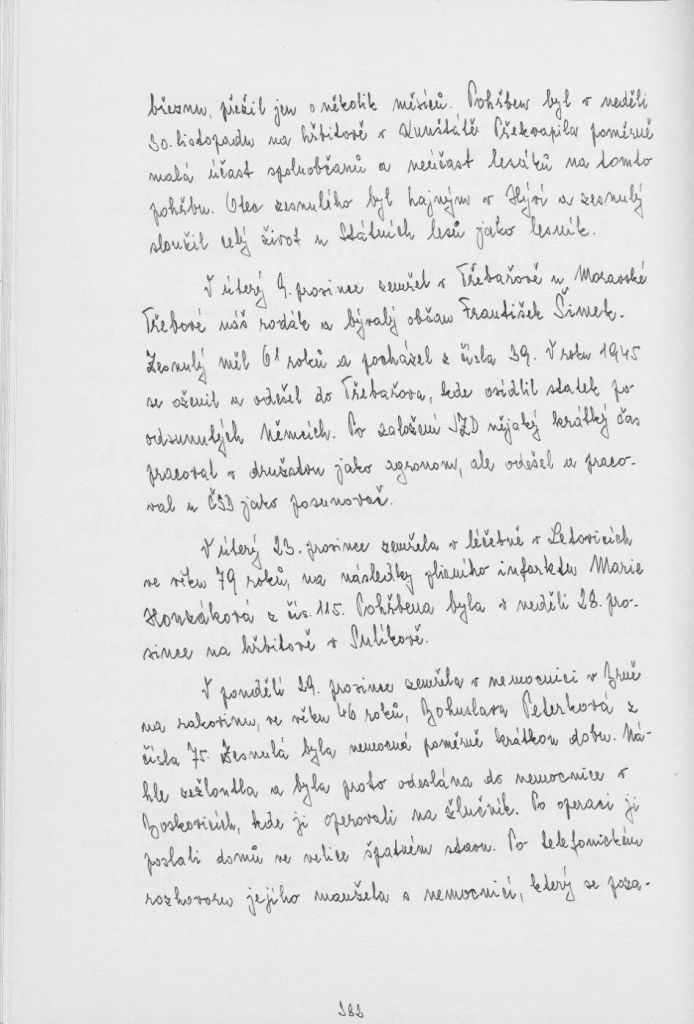 březnu, přežil jen o několik měsíců. Pohřben byl v neděli
30. listopadu na hřbitově v Kunštátě. Překvapila poměrně
malá účast spoluobčanů a neúčast lesáků na tomto
pohřbu. Otec zesnulého byl hajným v Hýví a zesnulý
sloužil celý život u Státních lesů jako lesník.
V úterý 9. prosince zemřel v Třebařově u Moravské
Třebové náš rodák a bývalý občan František Šimek.
Zesnulý měl 61 roků a pocházel z čísla 39. V roku 1945
se oženil a odešel do Třebařova, kde osídlil statek po
odsunutých Němcích. Po založení JZD nějaký krátký čas
pracoval v družstvu jako agronom, ale odešel a praco-
val u ČSD jako posunovač.
V úterý 23. prosince zemřela v léčebně v Letovicích
ve věku 79 roků, na následky plicního infarktu Marie
Honzáková z čís. 115. Pohřbena byla v neděli 28. pro-
since na hřbitově v Sulíkově.
V pondělí 29. prosince zemřela v nemocnici v Brně
na rakovinu, ve věku 46 roků, Bohuslava Peterková z
čísla 75. Zesnulá byla nemocná poměrně krátkou dobu. Ná-
hle zežloutla a byla proto odeslána do nemocnice v
Boskovicích, kde ji operovali na žlučník. Po operaci ji
poslali domů ve velice špatném stavu. Po telefonickém
rozhovoru jejího manžela s nemocnicí, který se poza-